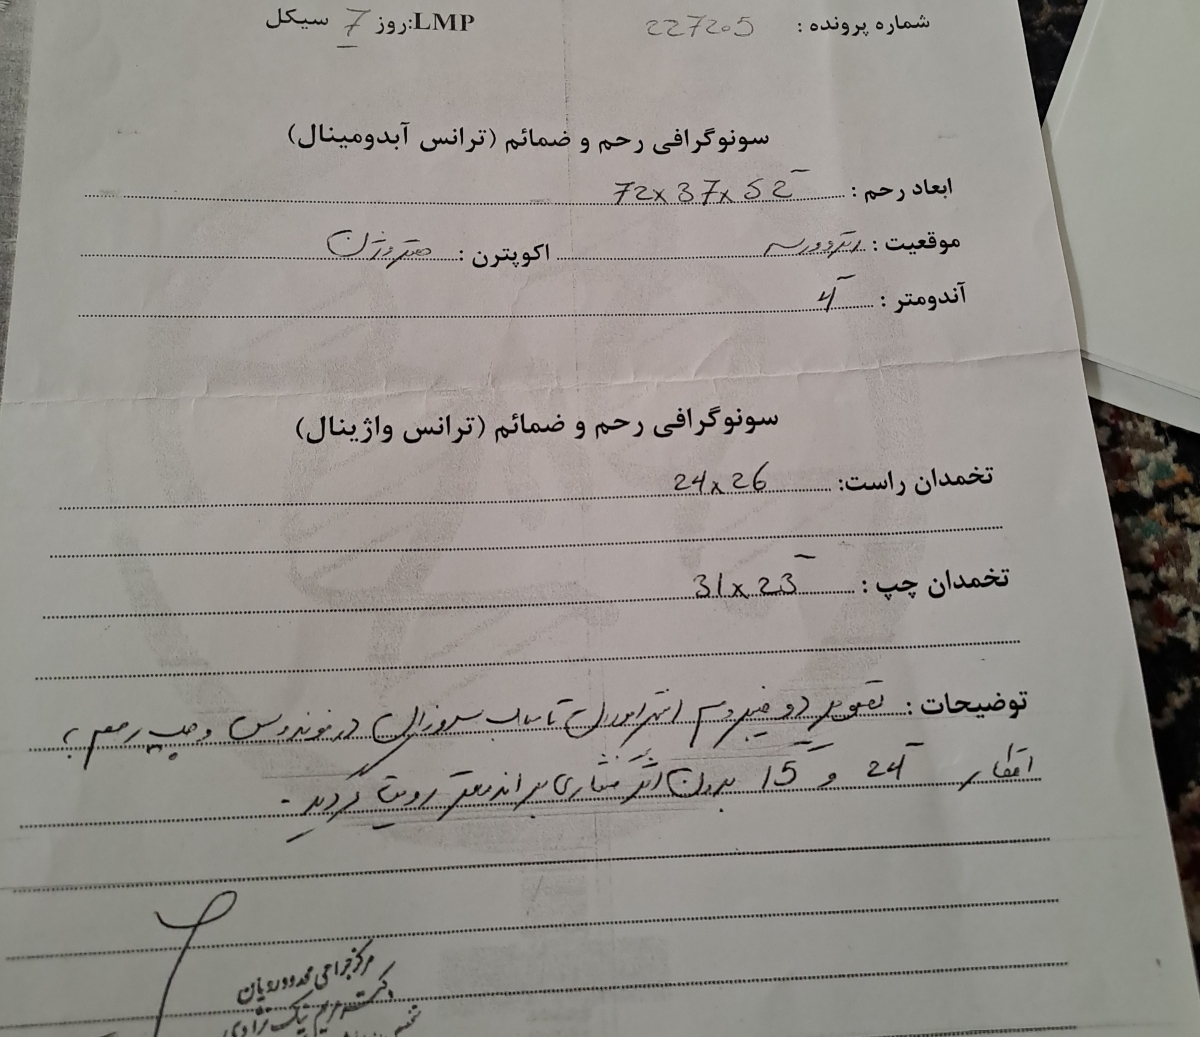 شماره پرونده : 227205 LMP:روز 7 سیکل
سونوگرافی رحم و ضمائم (ترانس آبدومینال)
ابعاد رحم : 72x37x52
موقعیت : رتروورسه اکوپترن : هتروژن
آندومتر : 4
سونوگرافی رحم و ضمائم (ترانس واژینال)
تخمدان راست: 24x26
تخمدان چپ : 31x23
توضیحات : تصویر دو فیبروم اینترامورال تا ساب سروزال در فوندوس و چپ رحم به
اقطار 24 و 15 بدون اثر فشاری بر اندومتر رویت گردید.
مرکز جراحی محدود رویان
دکتر مریم نیک نژادی